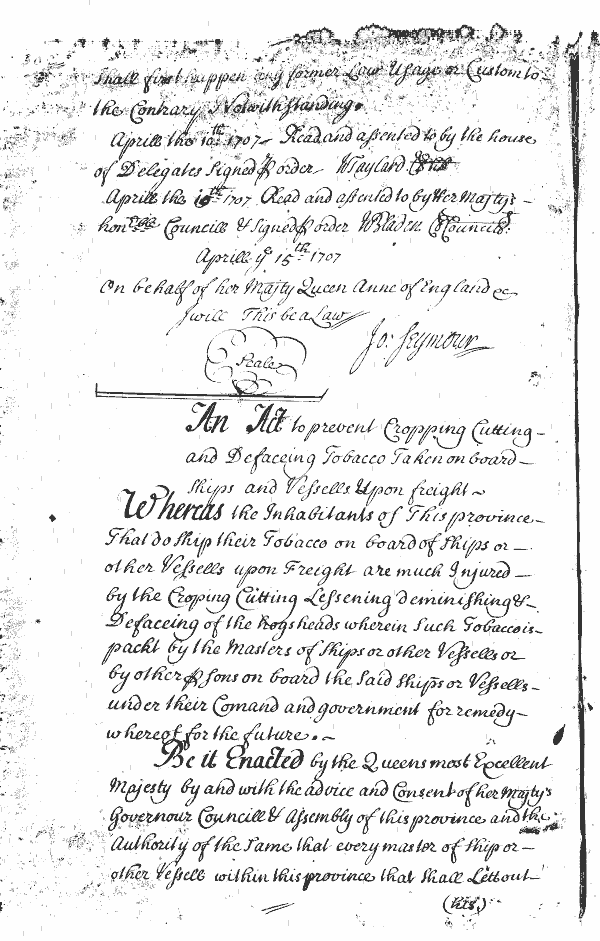 shall first happen any former Law Usage or Custom to
the Contrary Notwithstanding.
Aprill the 10th 1707 Read and assented to by the house
of Delegates Signed ꝑ order W Taylard
Aprill the 10th 1707 Read and assented to by Her Majtys
honble Councill & Signed ꝑ order W Bladen Cl Councill:
Aprill ye 15th 1707
On behalf of her Majty Queen Anne of England &c
I will This be a Law
Jo: Seymour
Seale
An Act to prevent Cropping Cutting
and Defaceing Tobacco Taken on board
Ships and Vessells Upon freight
Whereas the Inhabitants of This province
That do ship their Tobacco on board of Ships or
other Vessells upon Freight are much Injured
by the Croping Cutting Lessening deminishing &
Defaceing of the hogsheads wherein Such Tobacco is
packt by the Masters of Ships or other Vessells or
by other ꝑsons on board the Said Ships or Vessells
under their Comand and government for remedy
whereof for the future.
Be it Enacted by the Queens most Excellent
Majesty by and with the advice and Consent of her Majtys
Governour Councill & Assembly of this province and the
Authority of the Same that every master of Ship or
other Vessell within this province that Shall Lett out
(his)